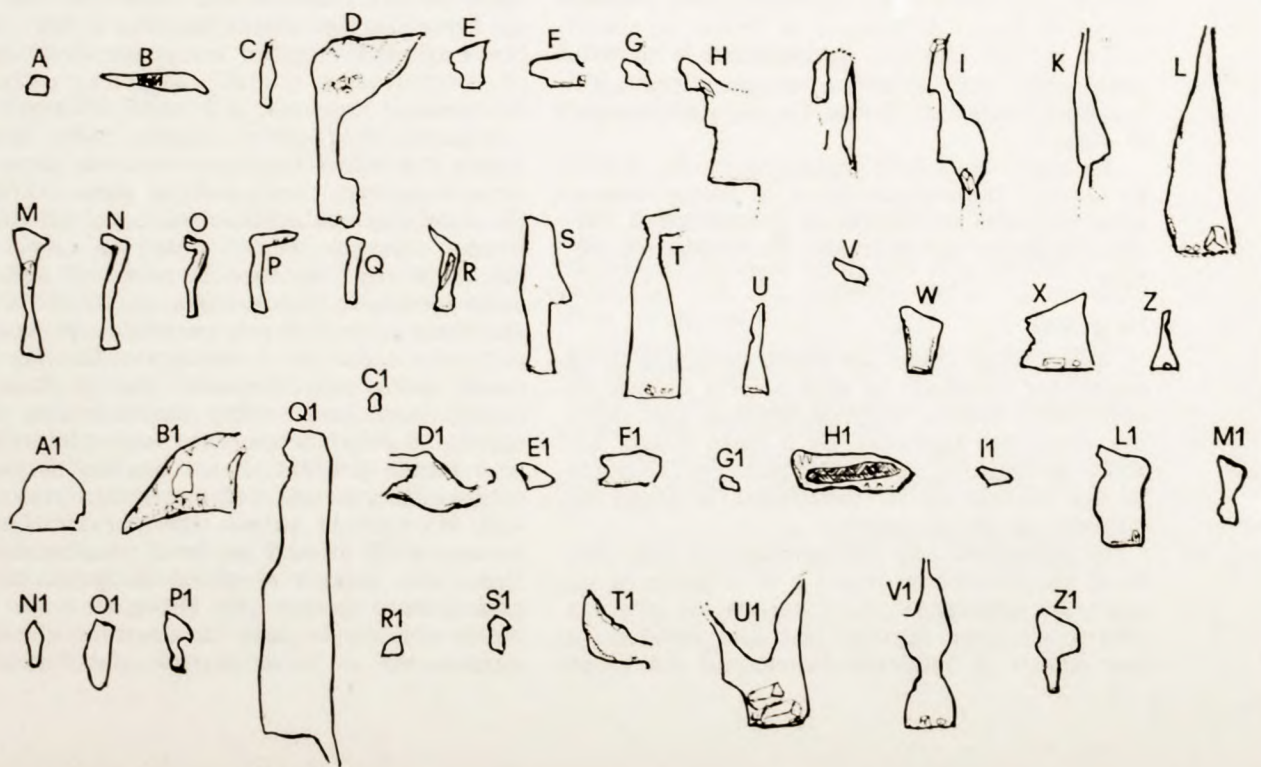 A B C D E F G H I K L
J
M N O P Q R S T U V W X Z
C1
A1 B1 Q1 D1 E1 F1 G1 H1 I1 L1 M1
N1 O1 P1 R1 S1 T1 U1 V1 Z1